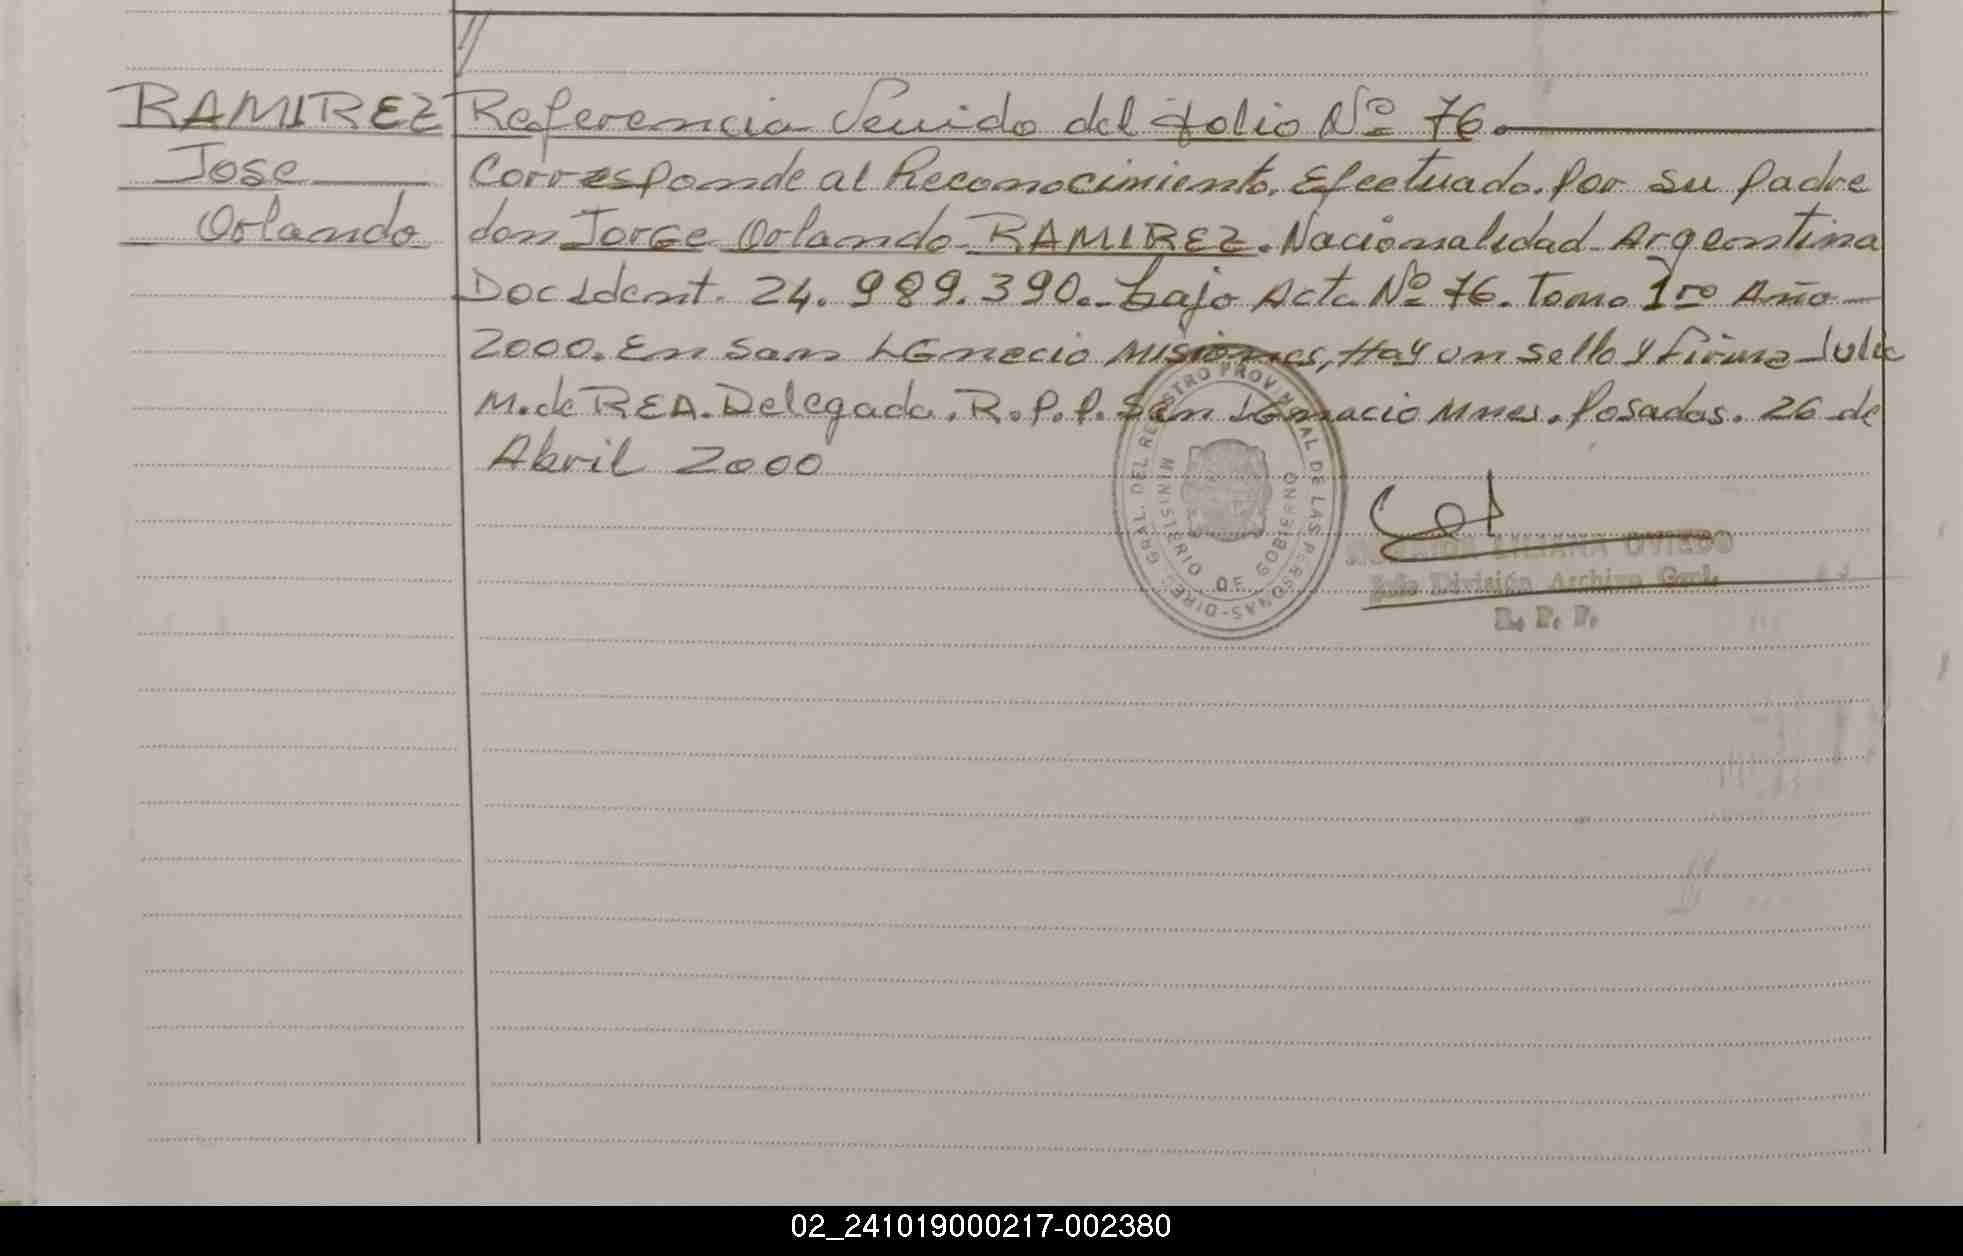 RAMIREZ
Jose
Orlando
Referencia Venido del folio Nº 76.
Corresponde al Reconocimiento. Efectuado. por su padre
don Jorge Orlando RAMIREZ. Nacionalidad Argentina
Doc Ident. 24.989.390.- bajo Acta Nº 76. Tomo 1ro Año
2000. En San IGnacio Misiones, Hay un sello y firma Julia
M. de REA. Delegada. R.P.P. San IGnacio Mnes. Posadas. 26 de
Abril 2000
DIREC. GRAL. DEL REGISTRO PROVINCIAL DE LAS PERSONAS
MINISTERIO DE GOBIERNO
LILIANA OVIEDO
Jefe División Archivo Gral.
R. P. P.
02_241019000217-002380